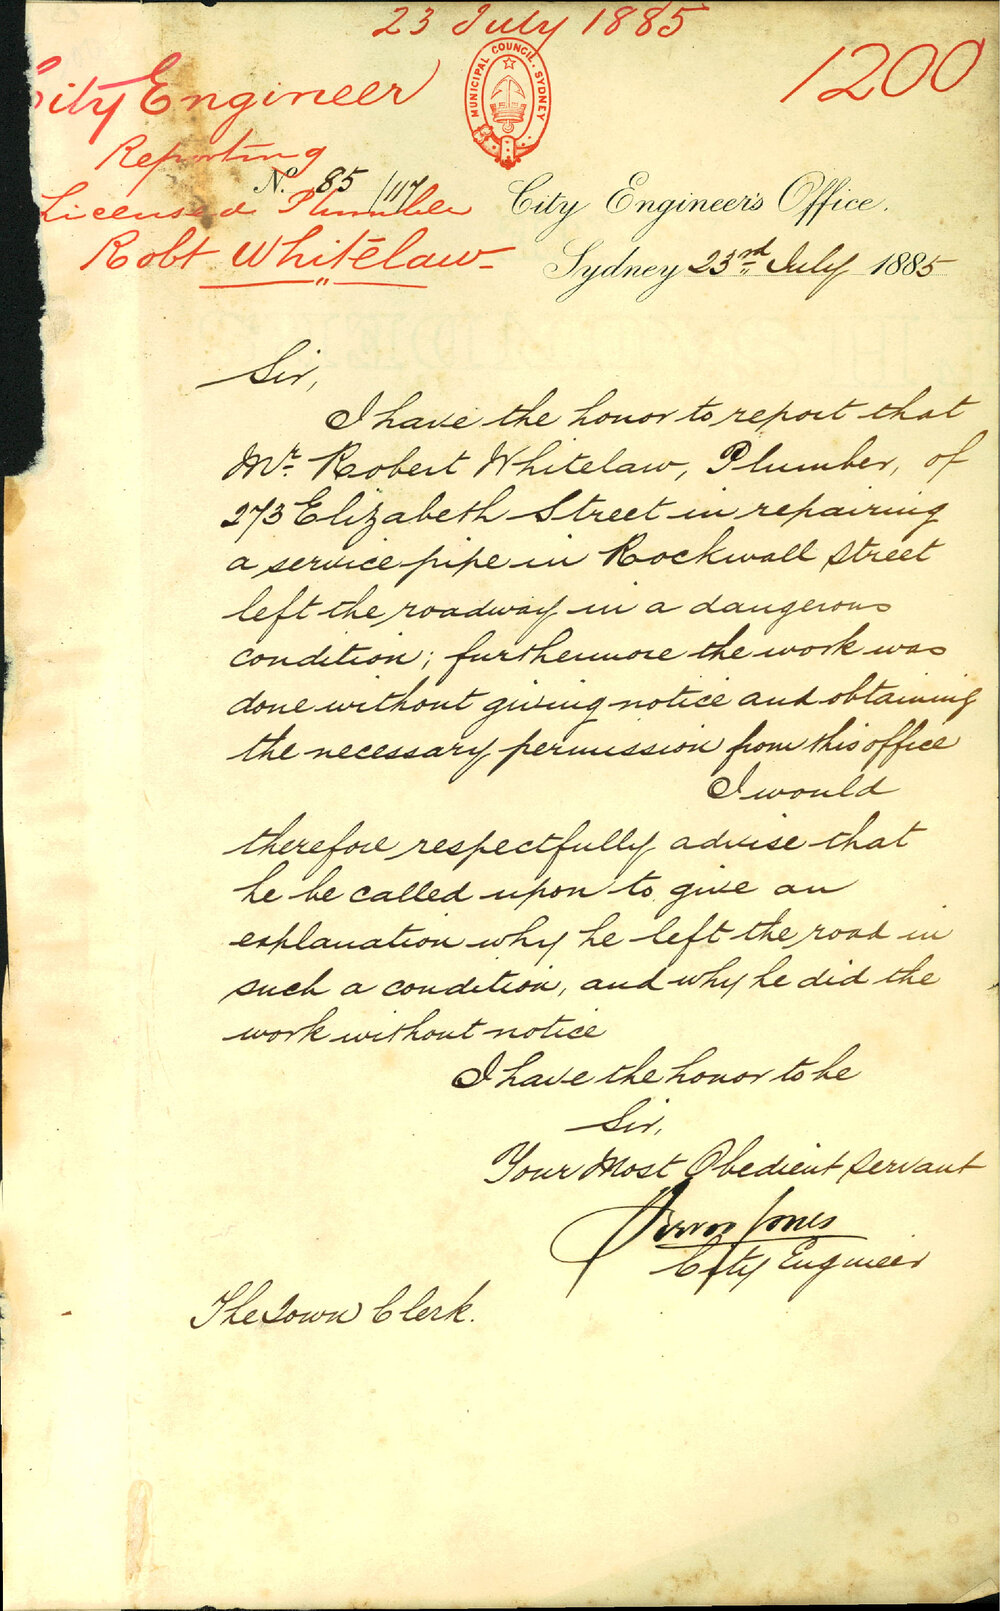 23 July 1885
1200
City Engineer
Reporting
Licensed Plumber
Robt Whitelaw
MUNICIPAL COUNCIL. SYDNEY
No. 85/117
City Engineer's Office.
Sydney 23rd July 1885
Sir,
I have the honor to report that
Mr. Robert Whitelaw, Plumber, of
273 Elizabeth Street in repairing
a service pipe in Rockwall Street
left the roadway in a dangerous
condition; furthermore the work was
done without giving notice and obtaining
the necessary permission from this office
I would
therefore respectfully advise that
he be called upon to give an
explanation why he left the road in
such a condition, and why he did the
work without notice
I have the honor to be
Sir,
Your Most Obedient Servant
Jones
City Engineer
The Town Clerk.